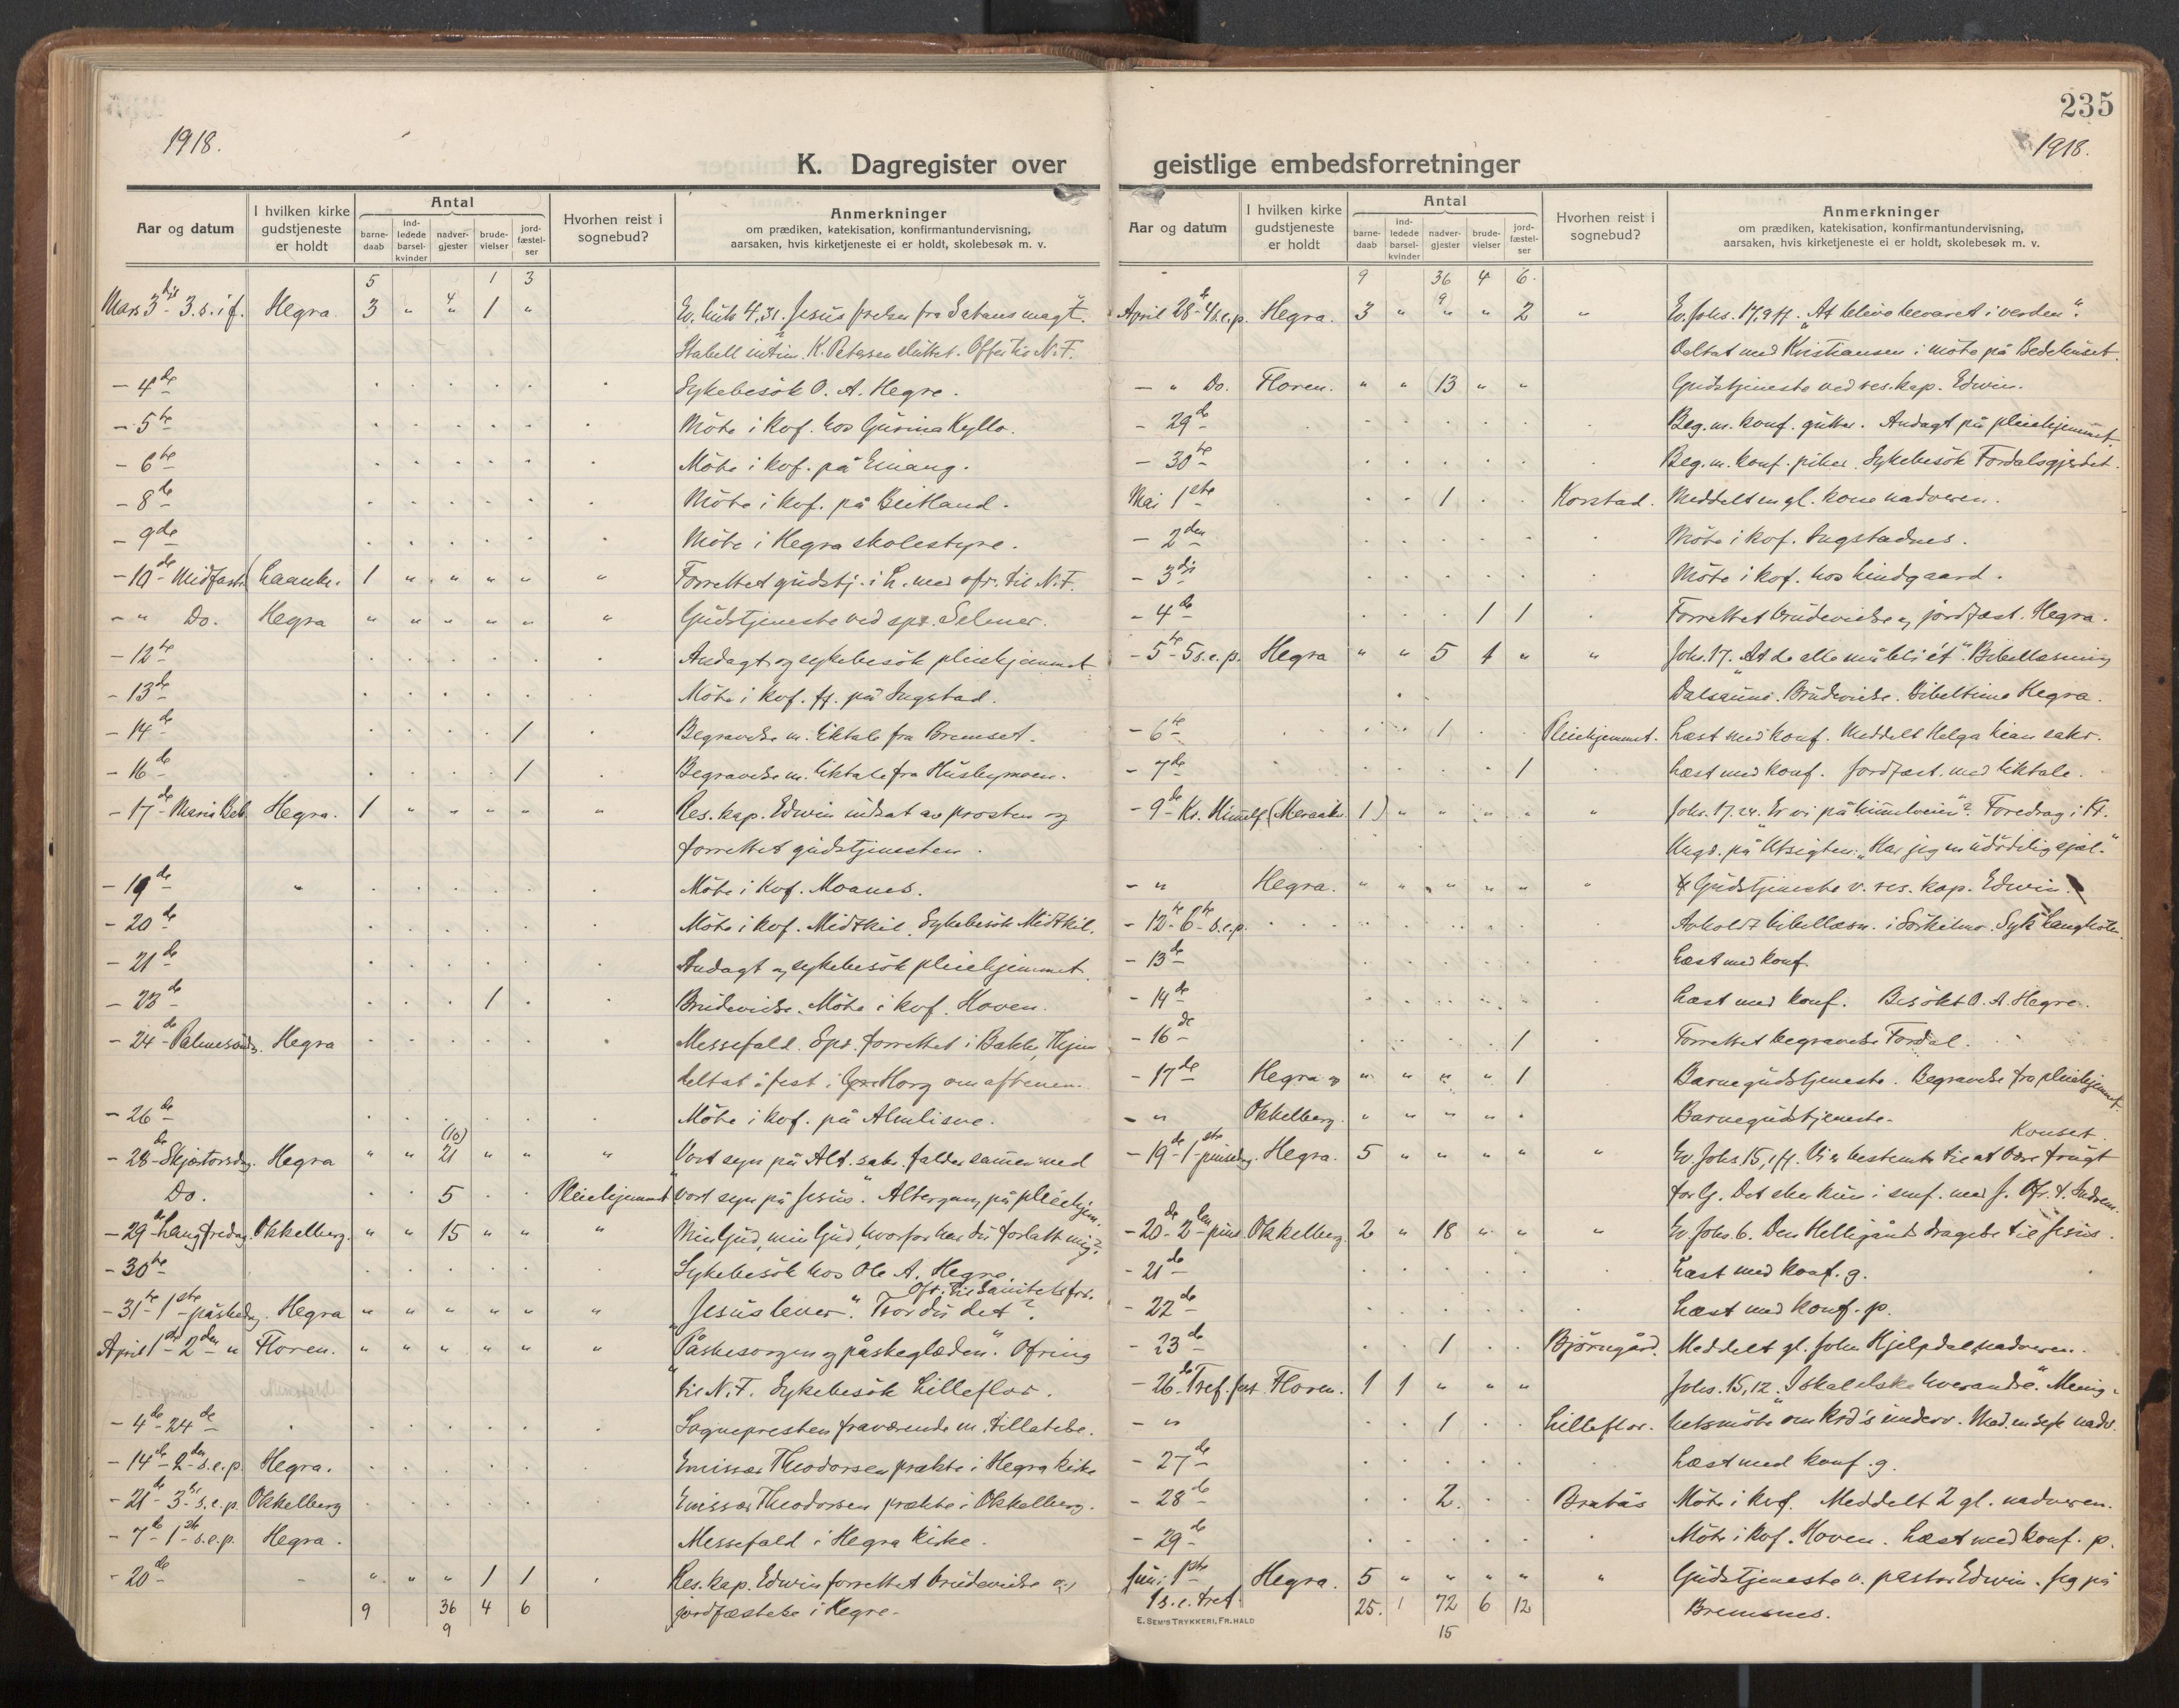 235
1918.
1918.
K. Dagregister over geistlige embedsforretninger
Aar og datum
I hvilken kirke gudstjeneste er holdt
Antal
barne-daab
ind-ledede barsel-kvinder
nadver-gjester
brude-vielser
jord-fæstel-ser
Hvorhen reist i sognebud?
Anmerkninger
om prædiken, katekisation, konfirmantundervisning,
aarsaken, hvis kirketjeneste ei er holdt, skolebesøk m. v.
5 1 3
Mars 3die 3. s. i f. Hegra. 3 " 4 " 1 " Ev. Luk 4,31. Jesus frelser fra Satans magt.
K. Petersen sluttet. Offer til N.F.
- 4de Sykebesök O. A. Hegre.
- 5te Möte i Kof. hos Gurina Kyllo.
- 6te Möte i kof. på Einang.
- 8de Möte i kof. på Beitland.
- 9de Möte i Hegra skolestyre.
- 10de Midfaste (Laanke. 1 " " " " " Forrettet gudstj. i L. med ofr. til N.F.
- " Do. Hegra " " " " " " Gudstjeneste ved spr. Selmer.
- 12te Andagt og sykebesök pleiehjemmet
- 13de Möte i kof. ff. på Ingstad.
- 14de 1 Begravelse m. liktale fra Bremset.
- 16de 1 Begravelse m. liktale fra Husbymoen.
- 17de Mariæ Beb. Hegra. 1 " " " " " Res. kap. Edwin indsat av prosten og
forrettet gudstjenesten.
- 19de " Möte i Kof. Moanes.
- 20de Möte i kof. Midtkil. Sykebesök Midtkil.
- 21de Andagt og sykebesök pleiehjemmet.
- 23de 1 Brudevielse. Möte i kof. Hoven.
- 24de Palmesönd. Hegra Messefald. Spr. forrettet i Bakke, Hegra
deltat i fest i Horg om aftenen.
- 26de Möte i kof. på Almlisve.
- 28de Skjærtorsdag. Hegra " " (10) 21 " " " Vort syn på Alt. sakr. falder samen med
Do. 5 Pleiehjemmet vort syn på Jesus". Altergang på pleiehjem.
- 29de Langfredag. Okkelberg. " " 15 " " " Min Gud, min Gud, hvorfor har du forlatt mig?
- 30te Sykebesök hos Ole A. Hegre.
Ofr. til Sanitetsfor.
- 31te 1ste påskedag. Hegra " " " " " " "Jesus lever". Tror du det?
April 1ste 2den " Floren. " " " " " " "Påskesorgen og påskeglæden". Ofring
til N.F. Sykebesök Lilleflor.
- 4de-24de Sognepresten fraværende m. tillatelse.
- 14de 2den s.e.p. Hegra. Emissær Theodorsen prækte i Hegra kirke
- 21de 3de s.e.p. Okkelberg Emissær Theodorsen prækte i Okkelberg.
- 7de 1ste s.e.p. Hegra. Messefald i Hegra kirke.
- 20de " " " 1 1 Res. kap. Edwin forrettet brudevielse og
9 36 4 6 jordfæstelse i Hegre.
9
Aar og datum
I hvilken kirke gudstjeneste er holdt
Antal
barne-daab
ind-ledede barsel-kvinder
nadver-gjester
brude-vielser
jord-fæstel-ser
Hvorhen reist i sognebud?
Anmerkninger
om prædiken, katekisation, konfirmantundervisning,
aarsaken, hvis kirketjeneste ei er holdt, skolebesøk m. v.
9 36 4 6.
April 28de 4 s.e.p. Hegra. 3 " 9 " " 2 " Ev. Johs. 17,9 ff. "At blive bevaret i verden".
Deltat med Kristiansen i möte på Bedehuset.
- " Do. Floren. " " 13 " " Gudstjeneste ved res. kap. Edwin.
- 29de Beg. m. konf. gutter. Andagt på pleiehjemmet.
- 30te Beg. m. konf. piker. Sykebesök Fordalsgjerdet.
Mai 1ste 1 Korstad. Meddelt en gl. kone nadveren.
- 2den Möte i kof. Ingstadnes.
- 3die Möte i kof. hos Lindgaard.
- 4de 1 1 Forrettet brudevielse og jordfæst. Hegra.
- 5te 5 s.e.p. Hegra " " 5 1 " " Johs. 17. "At de alle må bli ét". Bibellæsning
Brudevielse. Bibeltime Hegra.
- 6te 1 Pleiehjemmet. Læst med konf. Meddelt Helga Lian sakr.
- 7de 1 Læst med konf. Jordfæst. med liktale.
- 9de Kr. Himmelf. (Meraaker 1) " " " " " Johs. 17.24. Er vi på himmelveien"? Foredrag i Kr.
Ungd. på Utsigten: "Har jeg en udödelig sjæl."
- " Hegra. " " " " " " Gudstjeneste v. res. kap. Edwin.
- 12te 6te s.e.p. Avholdt bibellæsn. i Syk.
- 13de Læst med konf.
- 14de Læst med konf. Besökt O. A. Hegre.
- 16de 1 Forrettet begravelse Fordal.
- 17de Hegra og " " " " 1 Barnegudstjeneste. Begravelse fra pleiehjemmet.
- " Okkelberg. " " " " Barnegudstjeneste.
Konset.
- 19de 1ste pinsedag. Hegra. 5 " " " " " Ev. Johs. 15,1 ff. Vi er bestemte til at bære frugt
for G. Det sker kun i smf. med J. Ofr. t. Indrem.
- 20de 2den pins. Okkelberg. 2 " 18 " " " Ev. Johs. 6. Den Helligånds dragelse til Jesus.
- 21de Læst med konf. g.
- 22de Læst med konf. p.
- 23de 1 Björngård. Meddelt gl. John Hjelpdal nadveren.
- 26de Tref. fest Floren. 1 1 " " " Johs. 15,12. "I skal elske hverandre". Menig-
- " 1 Lilleflor. hetsmöte om krd's underv. Med. en syk nadv.
- 27de Læst med konf. g.
- 28de 2. Bratås Möte i kvf. Meddelt 2 gl. nadveren.
- 29de Möte i kof. Hoven. Læst med konf. p.
Juni 1ste Hegra. 5 " " " " " Gudstjeneste v. pastor Edwin. Jeg på
1 s.e. Tref. 25. 1 72 6 12 Bremsnes.
15
E. SEM'S TRYKKERI, FR.HALD